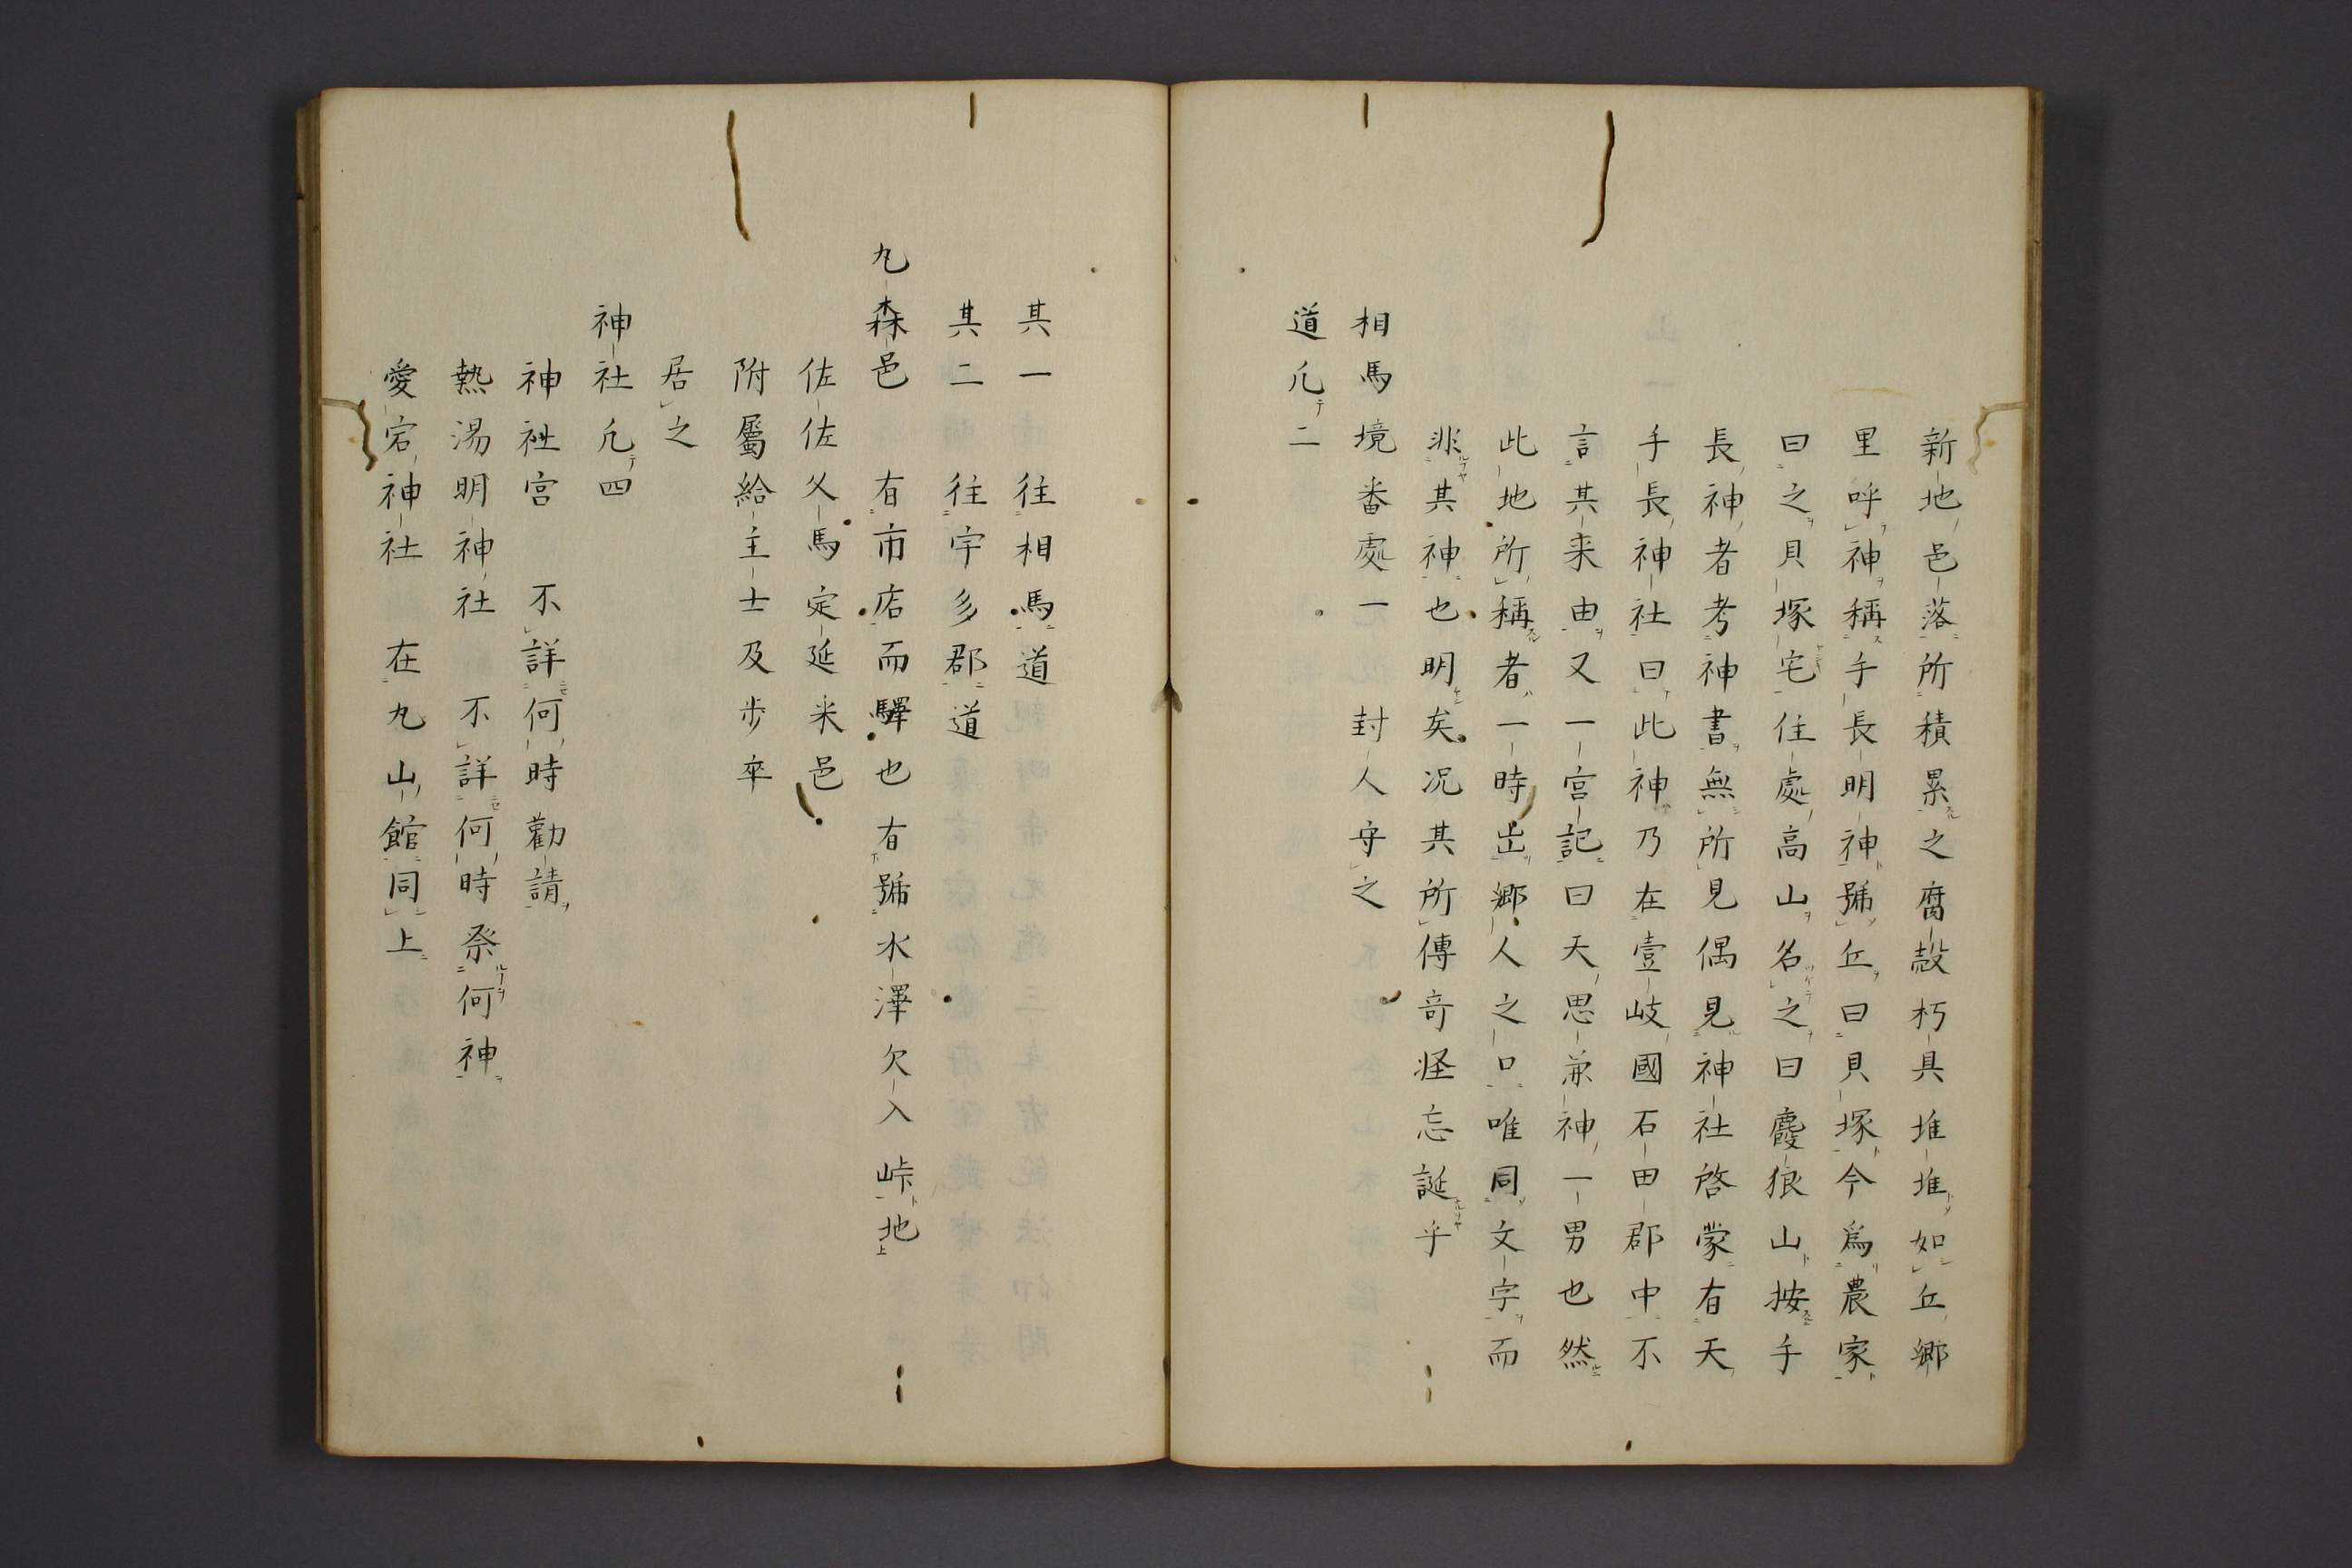 新地邑落所積累之腐殻朽具堆堆如丘郷
里呼神稱手長明神號丘曰貝塚今爲農家
曰之貝塚宅住處高山名之曰麞狼山按手
長神者考神書無所見偶見神社啓蒙有天
手長神社曰此神乃在壹岐國石田郡中不
言其来由又一宮記曰天思兼神一男也然
此地所稱者一時出郷人之口唯同文字而
非其神也明矣况其所傳奇怪忘誕乎
相馬境番處一　封人守之
道凢テ二
其一　往相馬道
其二　往宇多郡道
丸森邑　有市店而驛也有號水澤欠入峠地
佐佐久馬定延釆邑
附屬給主士及歩卒
居之
神社凢テ四
神祉宮　不詳何時勸請
熱湯明神社　不詳何時祭何神
愛宕神社　在丸山館同上